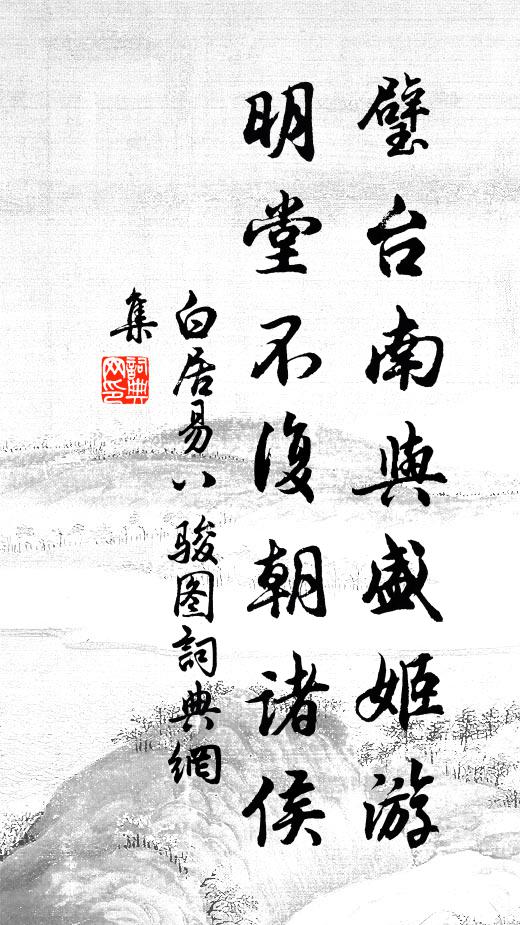 璧台南與盛姬游
明堂不復朝諸侯
白居易八駿图詞典網
集
詞典网印